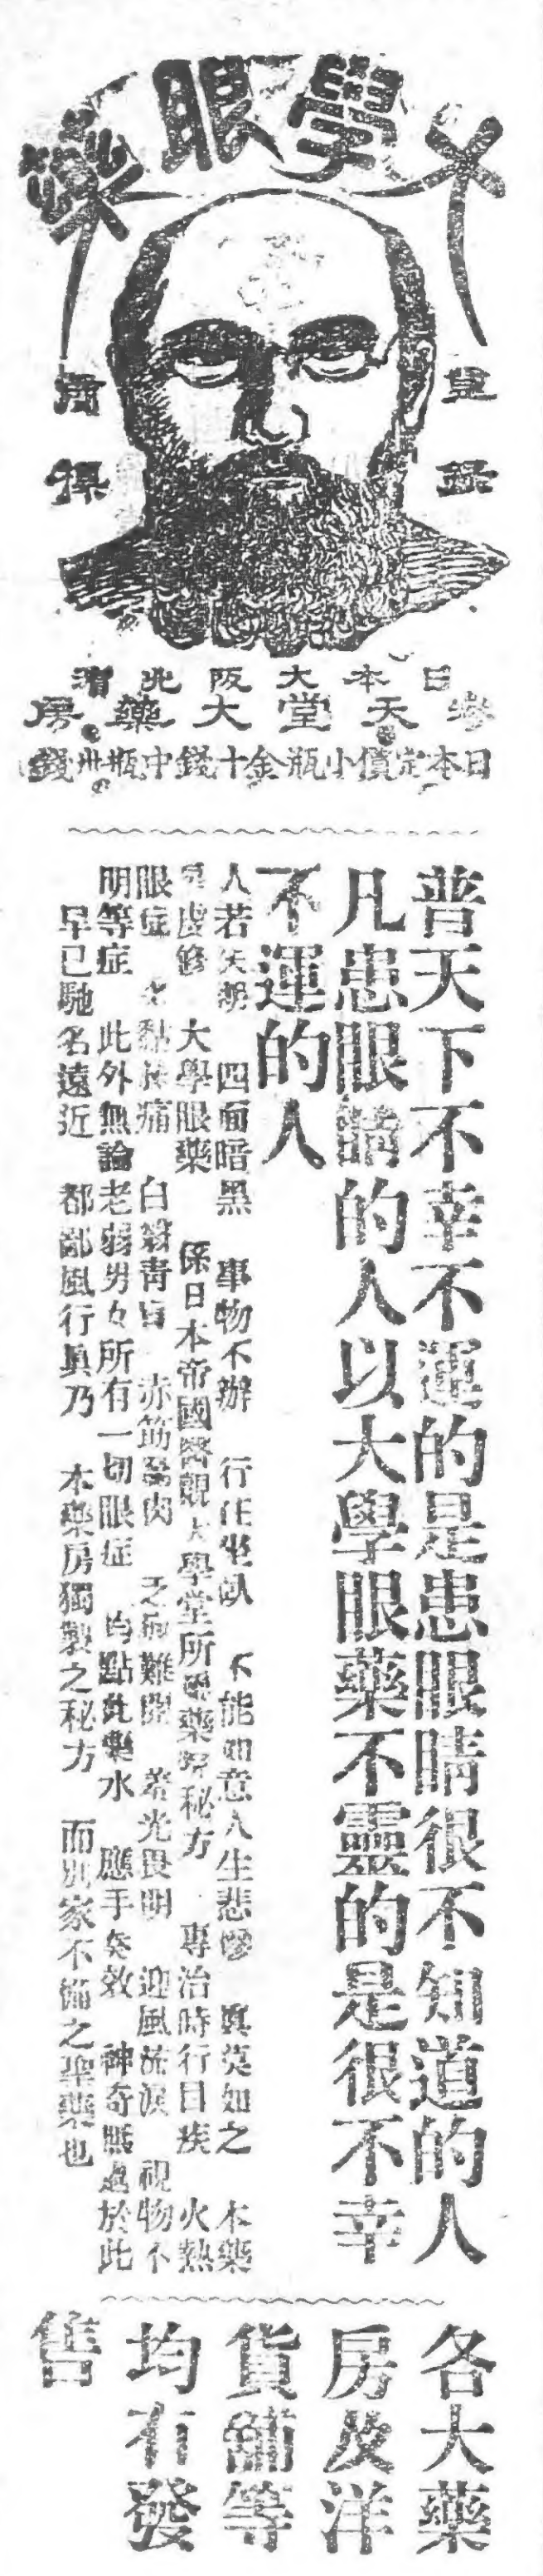 大學眼藥
日本大阪北濱
參天堂大藥房
日本定價小瓶金十錢中瓶卅錢
普天下不幸不運的是患眼睛很不知道的人
凡患眼睛的人以大學眼藥不靈的是很不幸
不運的人
人若失明 四面暗黑 事物不辦 行住坐臥 不能如意人生悲慘 眞莫如之 本藥
大學眼藥 係日本帝國醫 大學堂所 藥 秘方 專治時行目疾 火熱
眼症 痛 白翳靑盲 赤筋 肉 難開 羞光畏明 迎風流淚 視物不
明等症 此外無論老弱男女所有一切眼症 均點此藥水 應手奏效 神奇 過於此
早已馳名遠近 都鄙風行眞乃 本藥房獨製之秘方 而別家不備之聖藥也
各大藥
房及洋
貨舖等
均有發
售